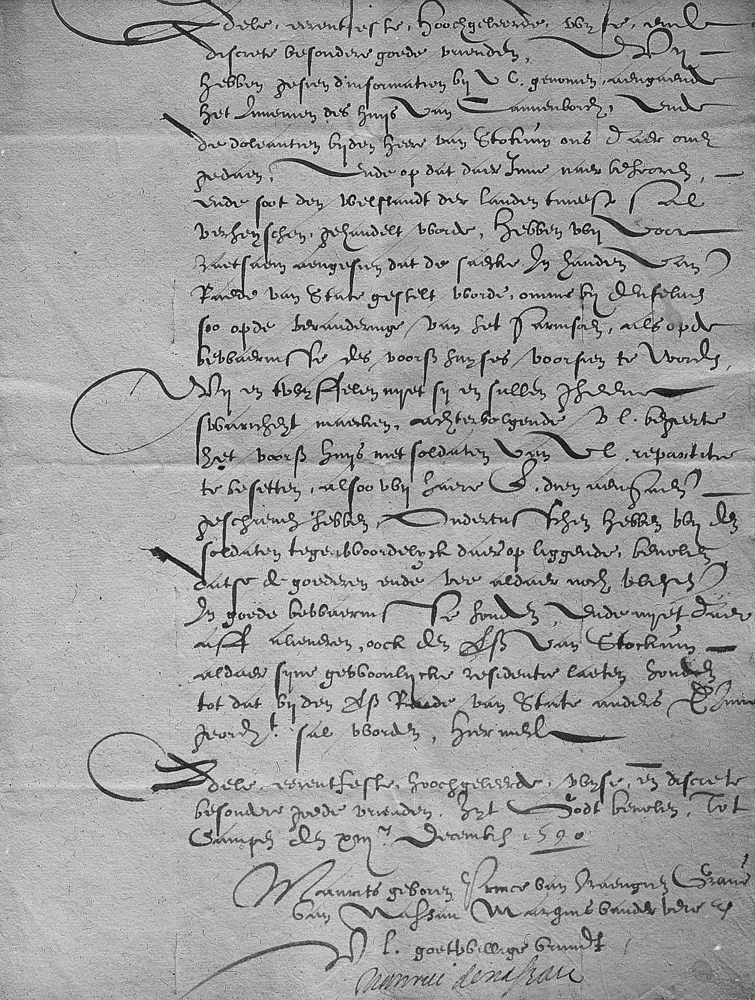 Edele, erentfeste, hoochgeleerde, wyse, ende
discrete besondere goede vrienden, Wy
hebben gesien d'informatien bij U L. genomen, aengaende
het Innemen des huijs Van Cannenborch, Ende
die doleantien bijden heere van Stockum ons daer over
gedaen, Ende op dat daer Inne naer behooren,
ende soot den welstandt der landen meest sal
verheysschen, gehandelt worde, hebben wij Voor
raetsaem aengesien dat de saecke In handen Van
Raede van State gestelt worde, omme bij deselve
soo opde veranderinge van het Garnison, als opde
bewaernisse des voorss huyses voorsien te Worden,
Wij en twyffelen nyet sij en sullen gheene
swaricheyt maecken, achtervolgende U L. begeerte
het voorss huijs met soldaten Van U L repartitie
te besetten, alsoo wij haere E. dien aengaende
geschreven hebben, Ondertusschen hebben wij den
soldaten tegenwoordelyck daer op liggende, bevolen
datse de goederen ende vee aldaer noch wesende
In goede bewaernisse te houden, Ende nyet daer
aff alieneren, oock den Heer Van Stockum
aldaer syne gewoonlycke residentie laeten houden
tot dat bijden Raede van State anders daer Inne
geordt. sal worden, Hier mede
Edele, erentfeste, hoochgeleerde, wyse, en discrete
besondere goede vrienden. Zyt Godt bevolen, Tot
Campen den xiij Decembris 1590
Maurits geboren Prince van Oraengien Grave
van Nassau Marquis vander Vere
U L. goetwillige vrundt
Maurice de Nassau